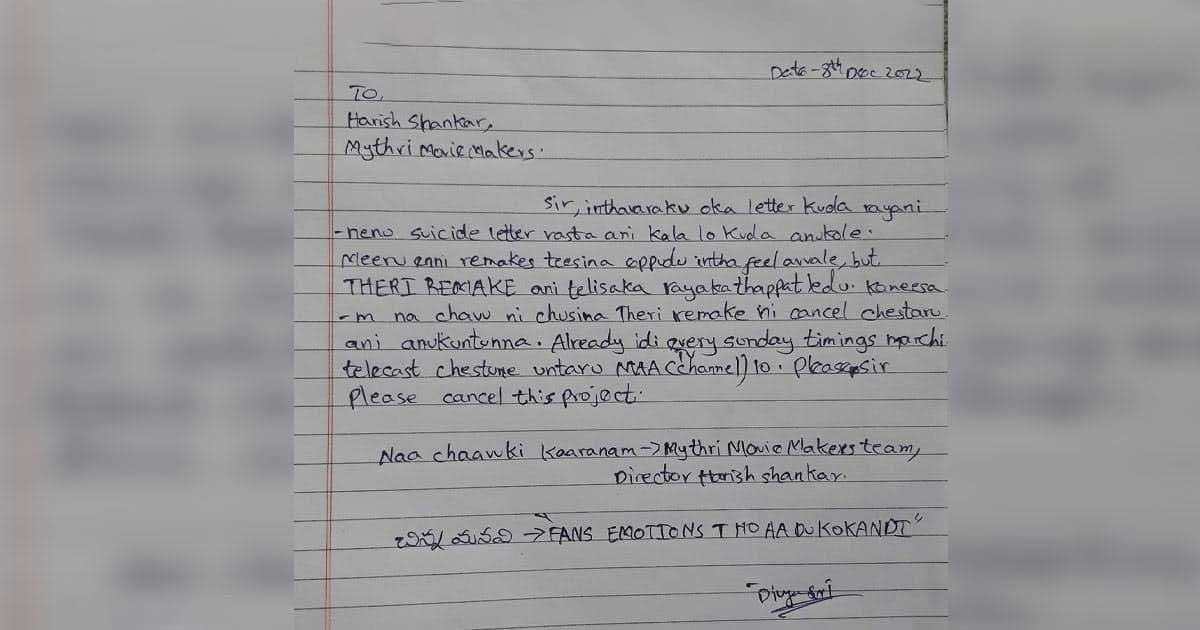 Date - 8th Dec 2022
TO,
Harish Shankar,
Mythri Movie Makers.
Sir, inthavaraku oka letter kuda rayani
-nenu suicide letter rasta ani kala lo kuda anukole.
Meeru enni remakes teesina appudu intha feel avvale, but
THERI REMAKE ani telisaka rayakathappatledu. Koneesa
-m na chavu ni chusina Theri remake ni cancel chestaru
ani anukuntunna. Already idi every sunday timings marchi
telecast chestune untaru MAA TV (channel) lo. Please sir
Please cancel this project.
Naa chaavuki kaaranam → Mythri Movie Makers team,
Director Harish shankar.
చిన్న మనవి → "FANS EMOTIONS THO AADUKOKANDI"
Divya Sri